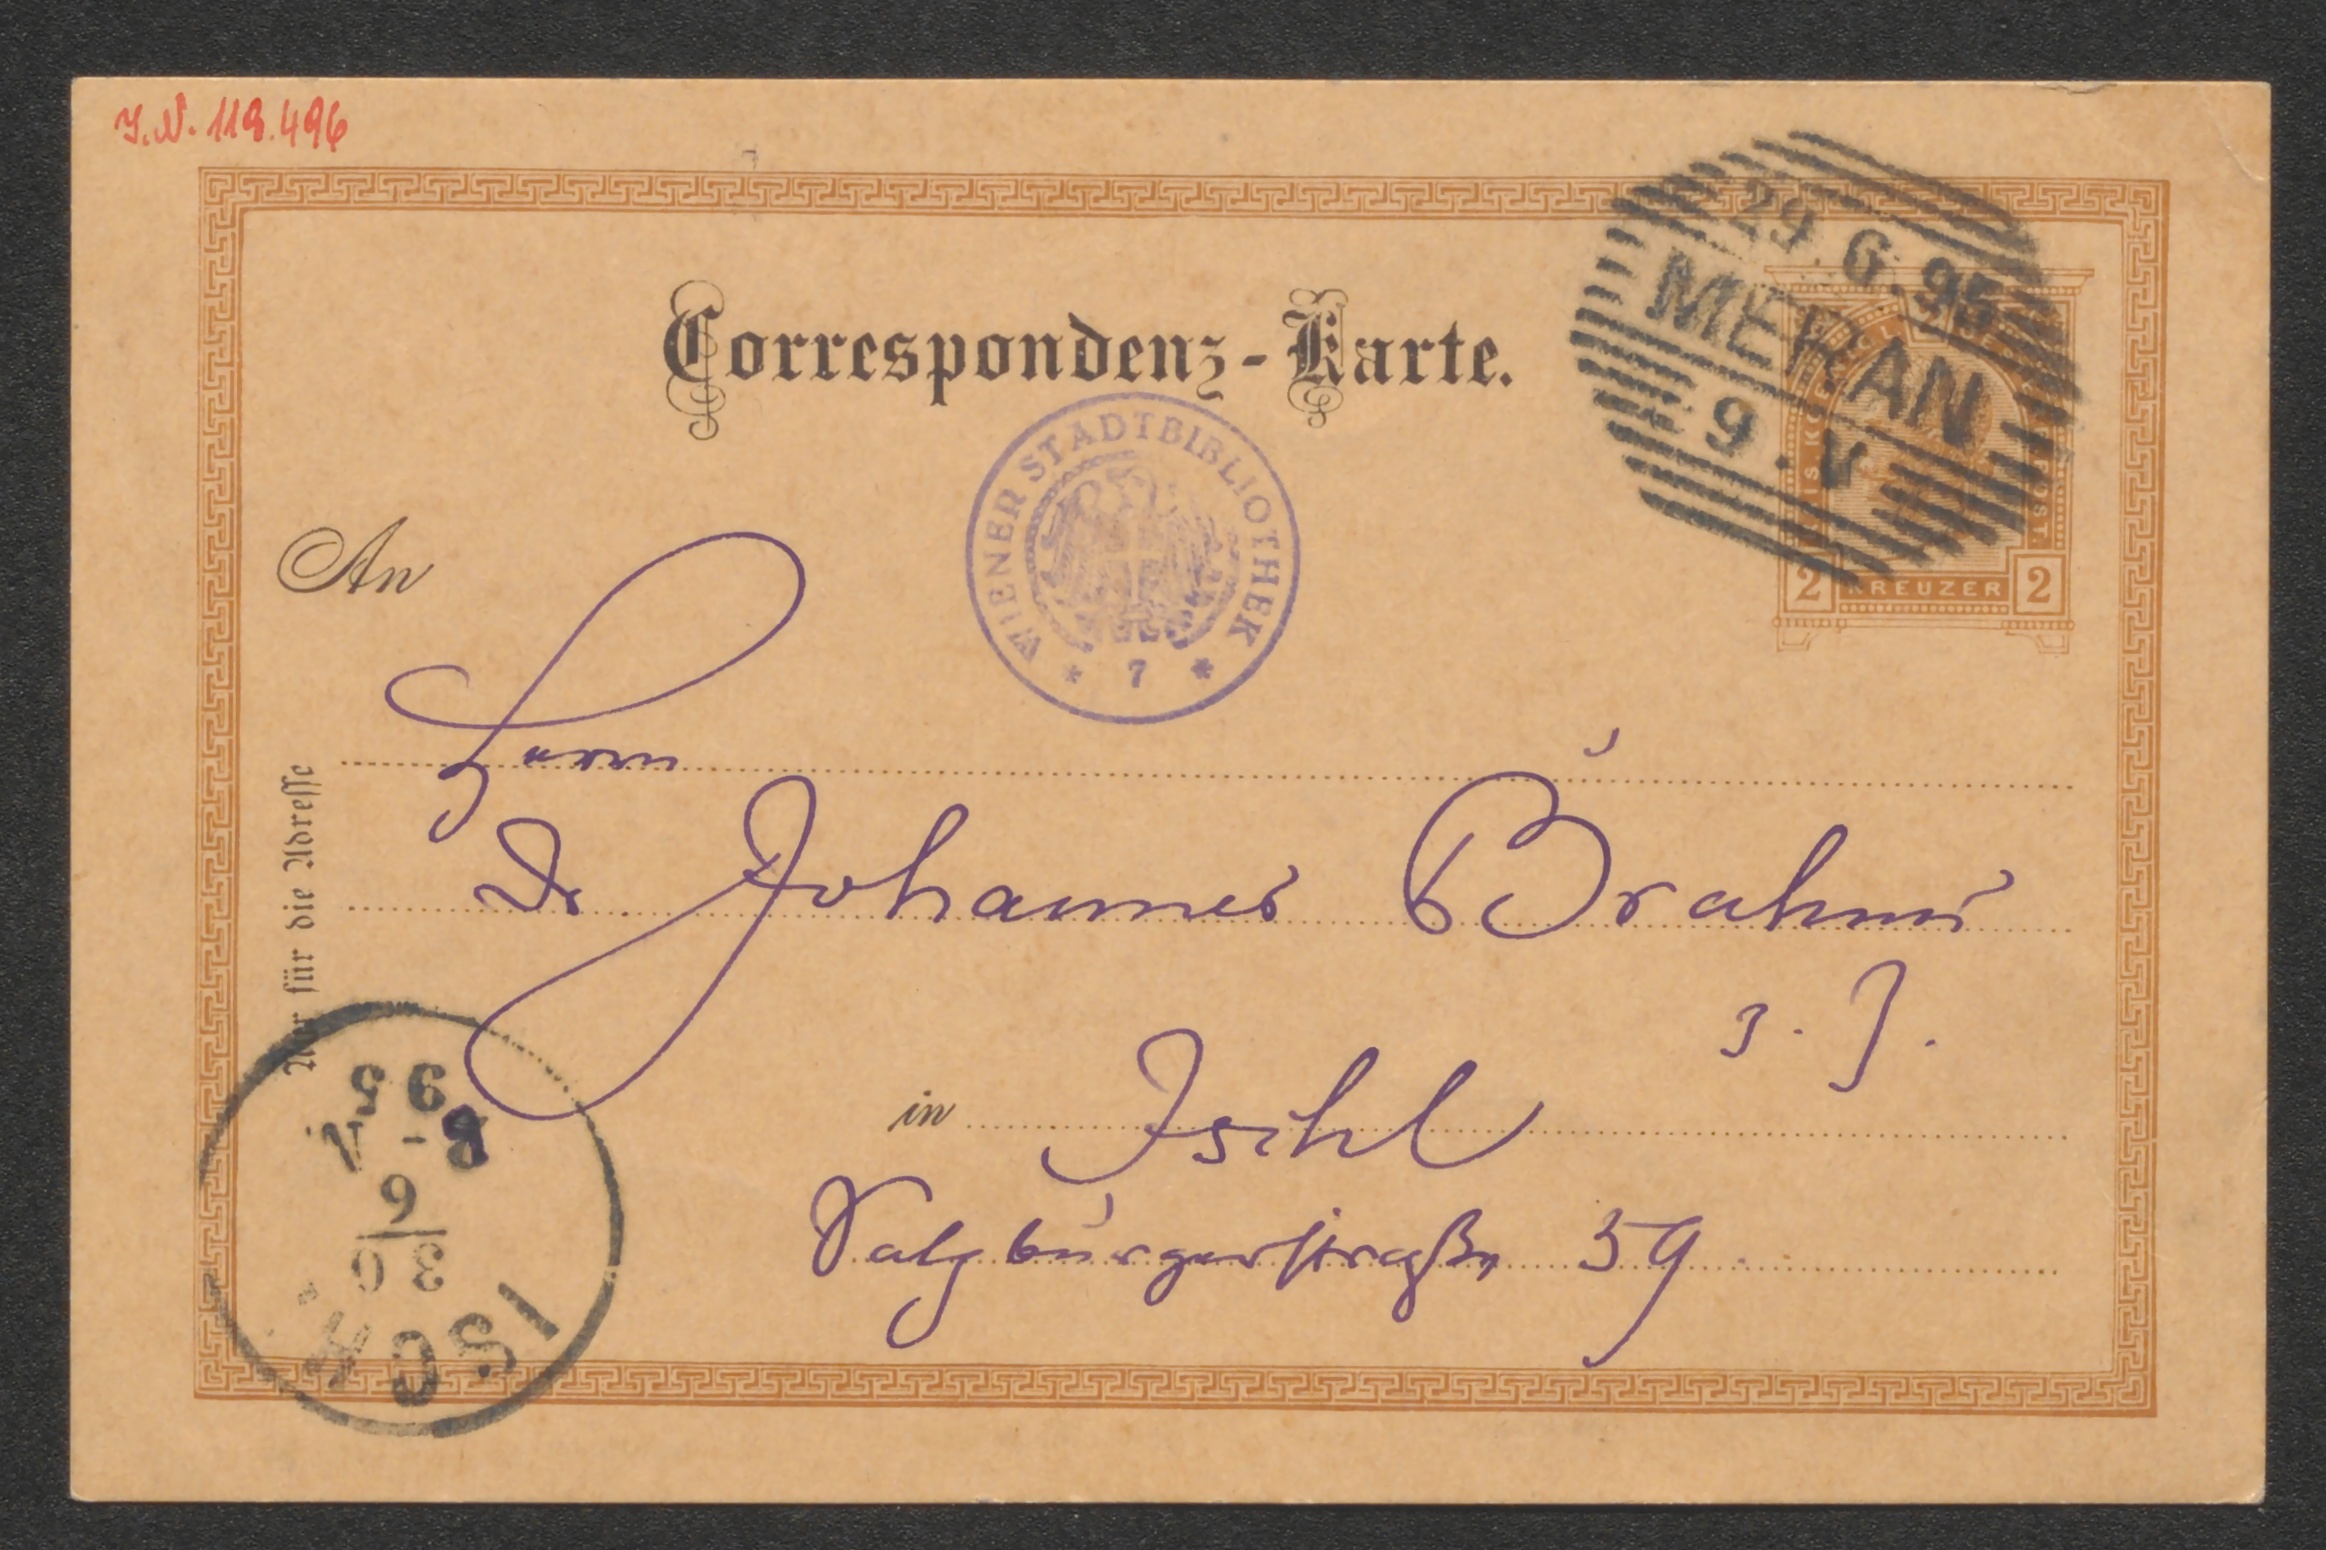 J.N. 118.496
29 6.95
MERAN
9.V
Correspondenz-Karte.
WIENER STADTBIBLIOTHEK
* 7 *
2 KREUZER 2
An
Herrn
Dr Johannes Brahms
z. Z.
in Ischl
Salzburgerstraße 59
Nur für die Adresse
ISCHL
30
6
8-N
95